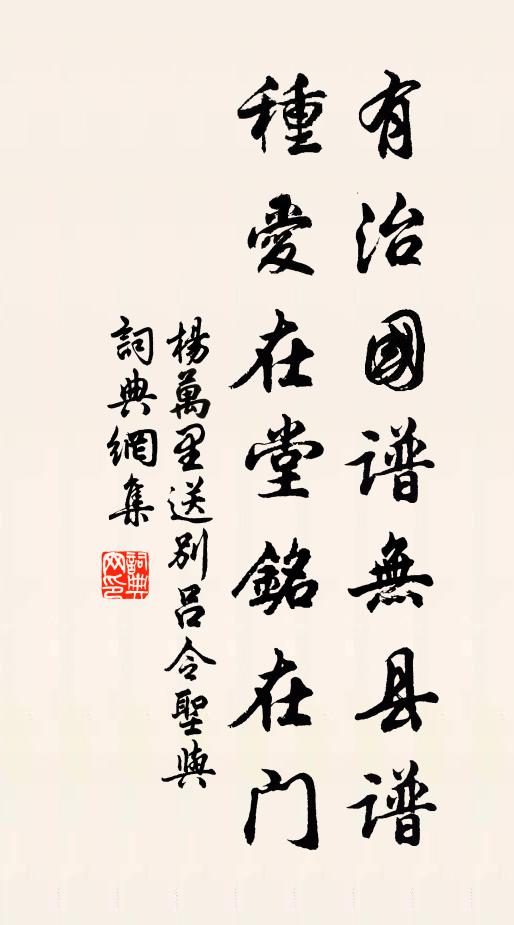 有治國谱無县谱
種愛在堂銘在门
楊萬里送别呂令聖與
詞典網集
詞典网印